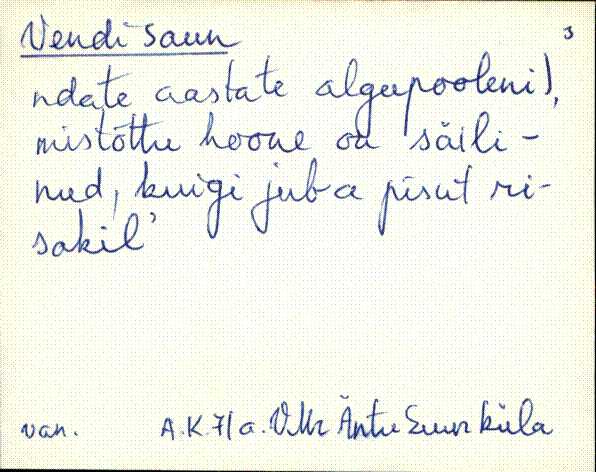 Vendi saun 3
ndate aastate algupooleni),
mistõttu hoone on säili-
nud, kuigi juba pisut ri-
sakil'
van. A.K. 71 a. VMr Äntu Suurküla